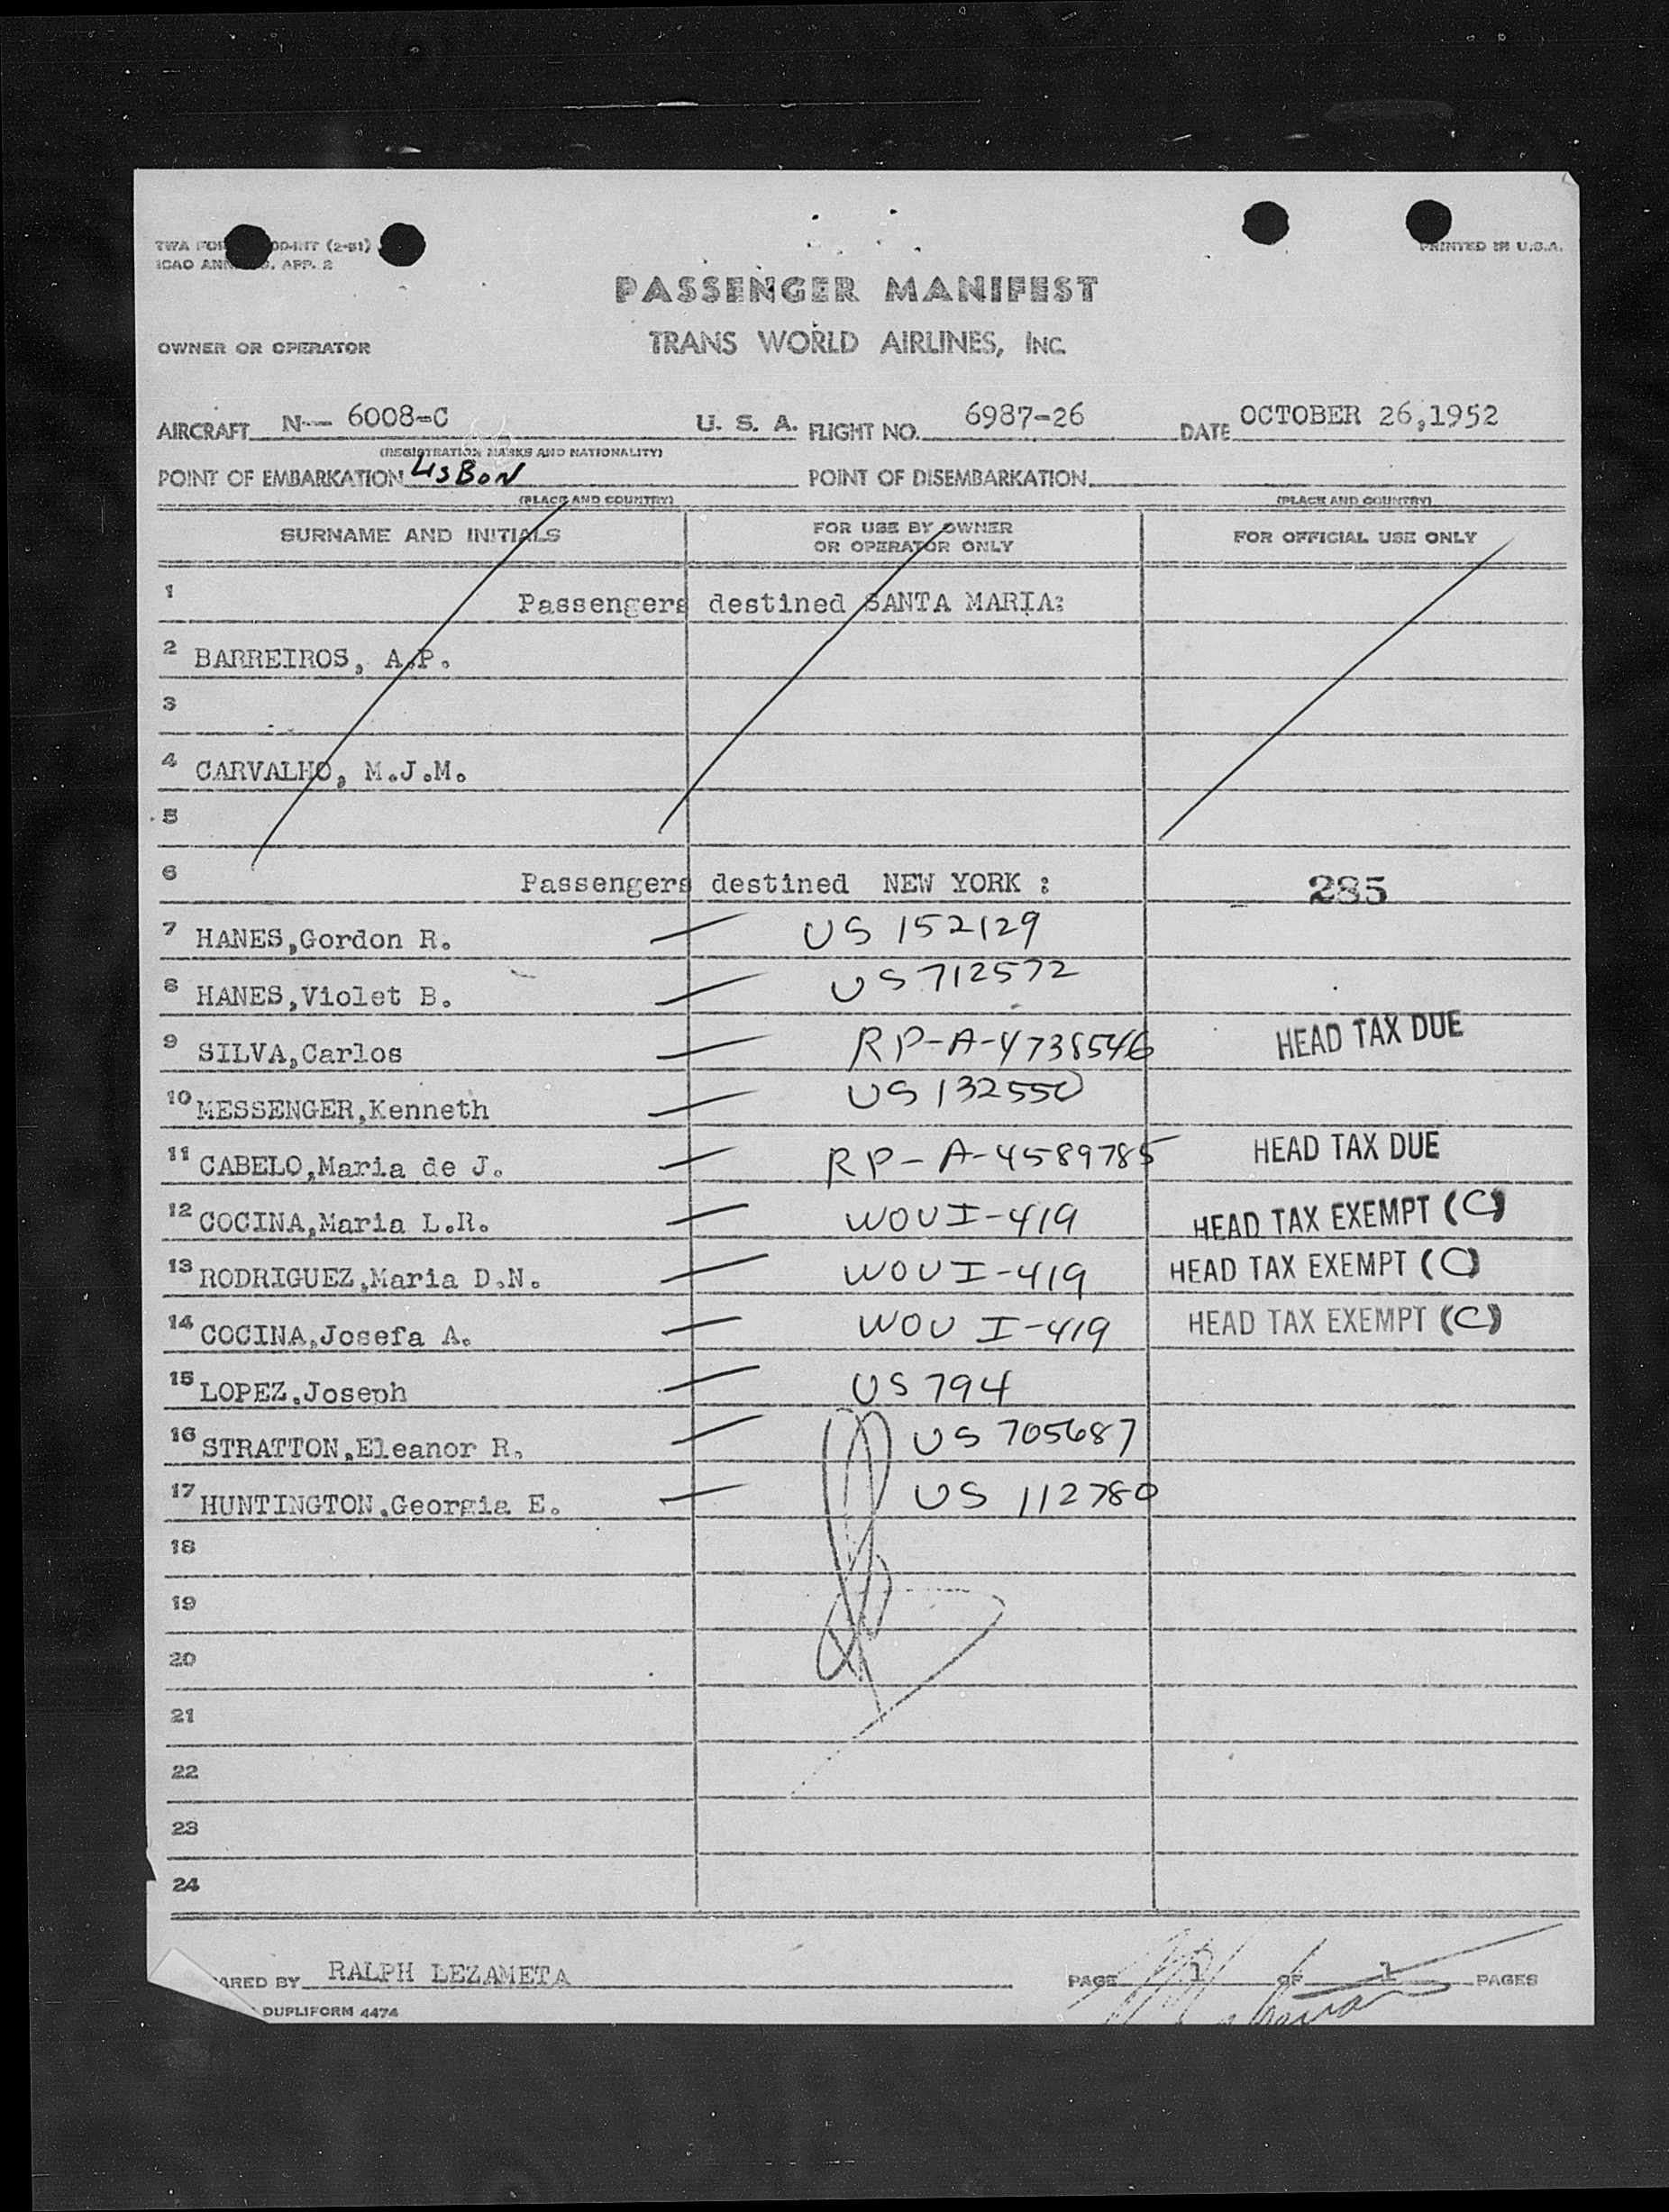 PRINTED IN U.S.A.
PASSENGER MANIFEST
OWNER OR OPERATOR TRANS WORLD AIRLINES, INC.
AIRCRAFT N-- 6008-C U. S. A. FLIGHT NO. 6987-26 DATE OCTOBER 26,1952
(REGISTRATION MARKS AND NATIONALITY)
POINT OF EMBARKATION LISBON POINT OF DISEMBARKATION
(PLACE AND COUNTRY) (PLACE AND COUNTRY)
SURNAME AND INITIALS FOR USE BY OWNER OR OPERATOR ONLY FOR OFFICIAL USE ONLY
1 Passengers destined SANTA MARIA:
2 BARREIROS, A.P.
3
4 CARVALHO, M.J.M.
5
6 Passengers destined NEW YORK : 285
7 HANES,Gordon R. US 152129
8 HANES,Violet B. US 712572
9 SILVA,Carlos RP-A-4738546 HEAD TAX DUE
10 MESSENGER,Kenneth US 132550
11 CABELO,Maria de J. RP-A-4589785 HEAD TAX DUE
12 COCINA,Maria L.R. WOU I-419 HEAD TAX EXEMPT (C)
13 RODRIGUEZ,Maria D.N. WOU I-419 HEAD TAX EXEMPT (C)
14 COCINA,Josefa A. WOU I-419 HEAD TAX EXEMPT (C)
15 LOPEZ,Joseph US 794
16 STRATTON,Eleanor R. US 705687
17 HUNTINGTON,Georgia E. US 112780
18
19
20
21
22
23
24
ARED BY RALPH LEZAMETA PAGE 1 OF 1 PAGES
DUPLIFORM 4474